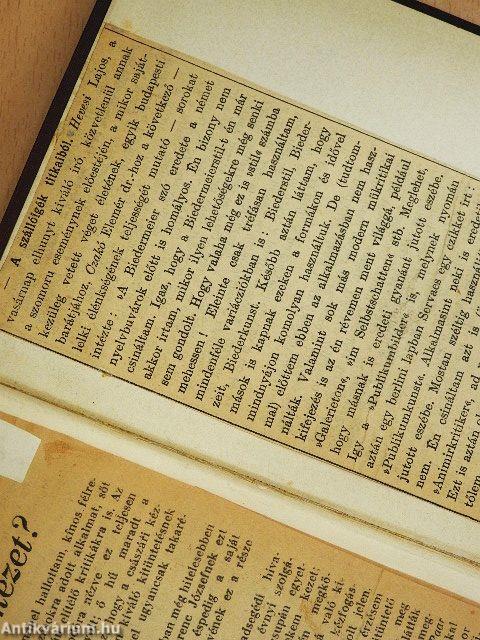 — A szállóigék titkaiból. Hevesi Lajos, a
vasárnap elhunyt kiváló író közvetlenül annak
a szomoru eseménynek előestéjén, a mikor saját-
kezüleg vetett véget életének, egyik budapesti
barátjához, Czakó Elemér dr.-hoz a következő —
lelki élénkségének teljességét mutató — sorokat
intézte: »A Biedermeier szó eredete a német
nyelvbuvárok előtt is homályos. Én bizony nem
csináltam. Igaz, hogy a Biedermeierstil-t én már
akkor irtam, mikor ilyen lehetőségekre még senki
sem gondolt. Hogy valaha még ez is »stil« számba
mehessen! Eleinte csak tréfásan használtam,
mindenféle variácziókban is: Biederstil, Bieder-
zeit, Biederkunst. Később aztán láttam, hogy
mások is kapnak ezeken a formákon és idővel
mindnyájon komolyan használtuk. De (tudtom-
mal) előttem ebben az alkalmazásban nem hasz-
nálták. Valamint sok más modern műkritikai
kifejezés is az én révemen ment világgá, például
»Galerieton«, »im Selbstschatten« stb. Meglehet,
hogy másnak is eredeti gyanánt jutott eszébe.
Igy a »Publikumbilder« is, melynek nyomán
aztán egy berlini lapban Servaes egy czikket irt:
»Publikumkunst«. Alkalmasint neki is eredetileg
jutott eszébe. Mostan széltig
nem. Én csináltam azt is
»Animirkritiker«, ad
Ezt is aztán
tőlem
ezet?
el hallottam, kinos félre-
akra adott alkalmat, sőt
üntető kritikákra is. Az
nézve ez teljesen
ő hü maradt a
egy császári kéz-
kiváló kitüntetésnek
el ugyancsak takaré-
ban még hitelesebben
erenc Józsefnek ezt
éspedig a saját
ének ez a része
adsegédi hiva-
évnyi szolgá-
supán egyet-
kezet:
megkö-
való ki-
kézfogás
jelen.
érzésem
meg
Antikvárium.hu